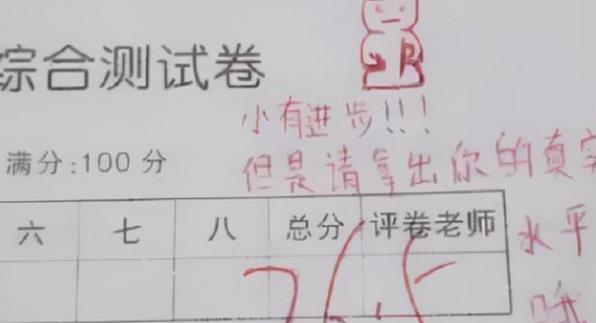 综合测试卷
小有进步!!!
满分:100分
但是请拿出你的真实
六 七 八 总分 评卷老师
水平
哦